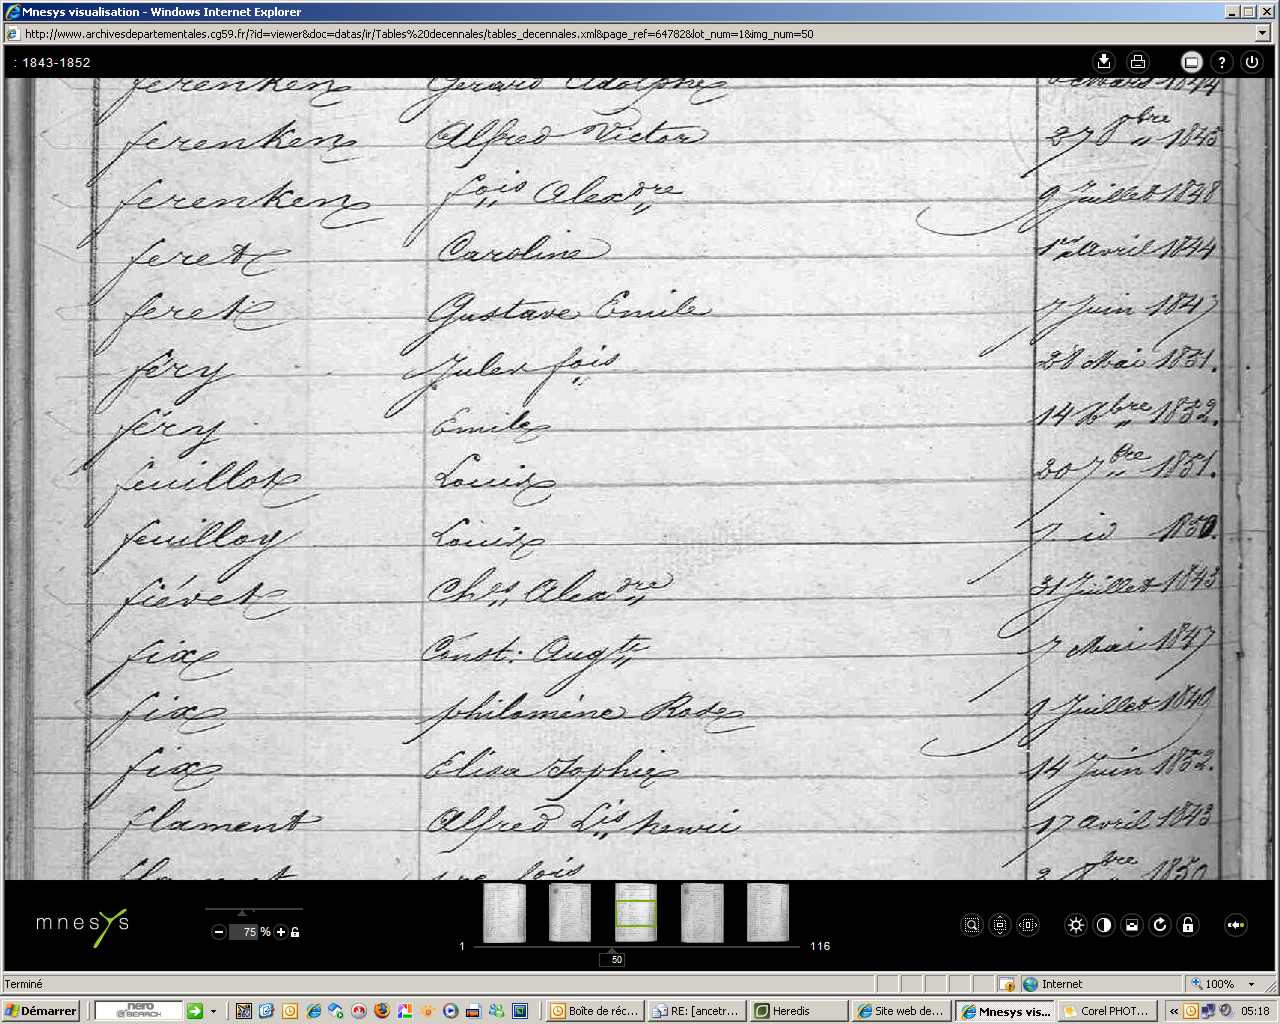 Mnesys visualisation - Windows Internet Explorer
http://www.archivesdepartementales.cg59.fr/?id=viewer&doc=datas/ir/Tables%20decennales/tables_decennales.xml&page_ref=64782&lot_num=1&img_num=50
: 1843-1852
ferenken Gerard Adolphe mars 1844
ferenken Alfred Victor 27 8bre 1845
ferenken fois Alexdre 9 Juillet 1848
feret Caroline 1er avril 1844
feret Gustave Emile 7 Juin 1847
féry Jules fois 28 Mai 1851.
féry Emile 14 Xbre 1852.
feuillot Louis 20 7bre 1851.
feuilloy Louis 7 id 1850.
fiévet Chs Alexdre 31 Juillet 1843
fix Const. Augte 7 Mai 1847
fix philomène Rose 9 Juillet 1849
fix Elisa Sophie 14 Juin 1852.
flament Alfred Lis henri 17 avril 1843
flament fois 1850
mnesys
75 %
1 116
50
Terminé Internet 100%
Démarrer nero SEARCH Boîte de réc... RE: [ancetr... Heredis Site web de... Mnesys vis... Corel PHOT... « 05:18